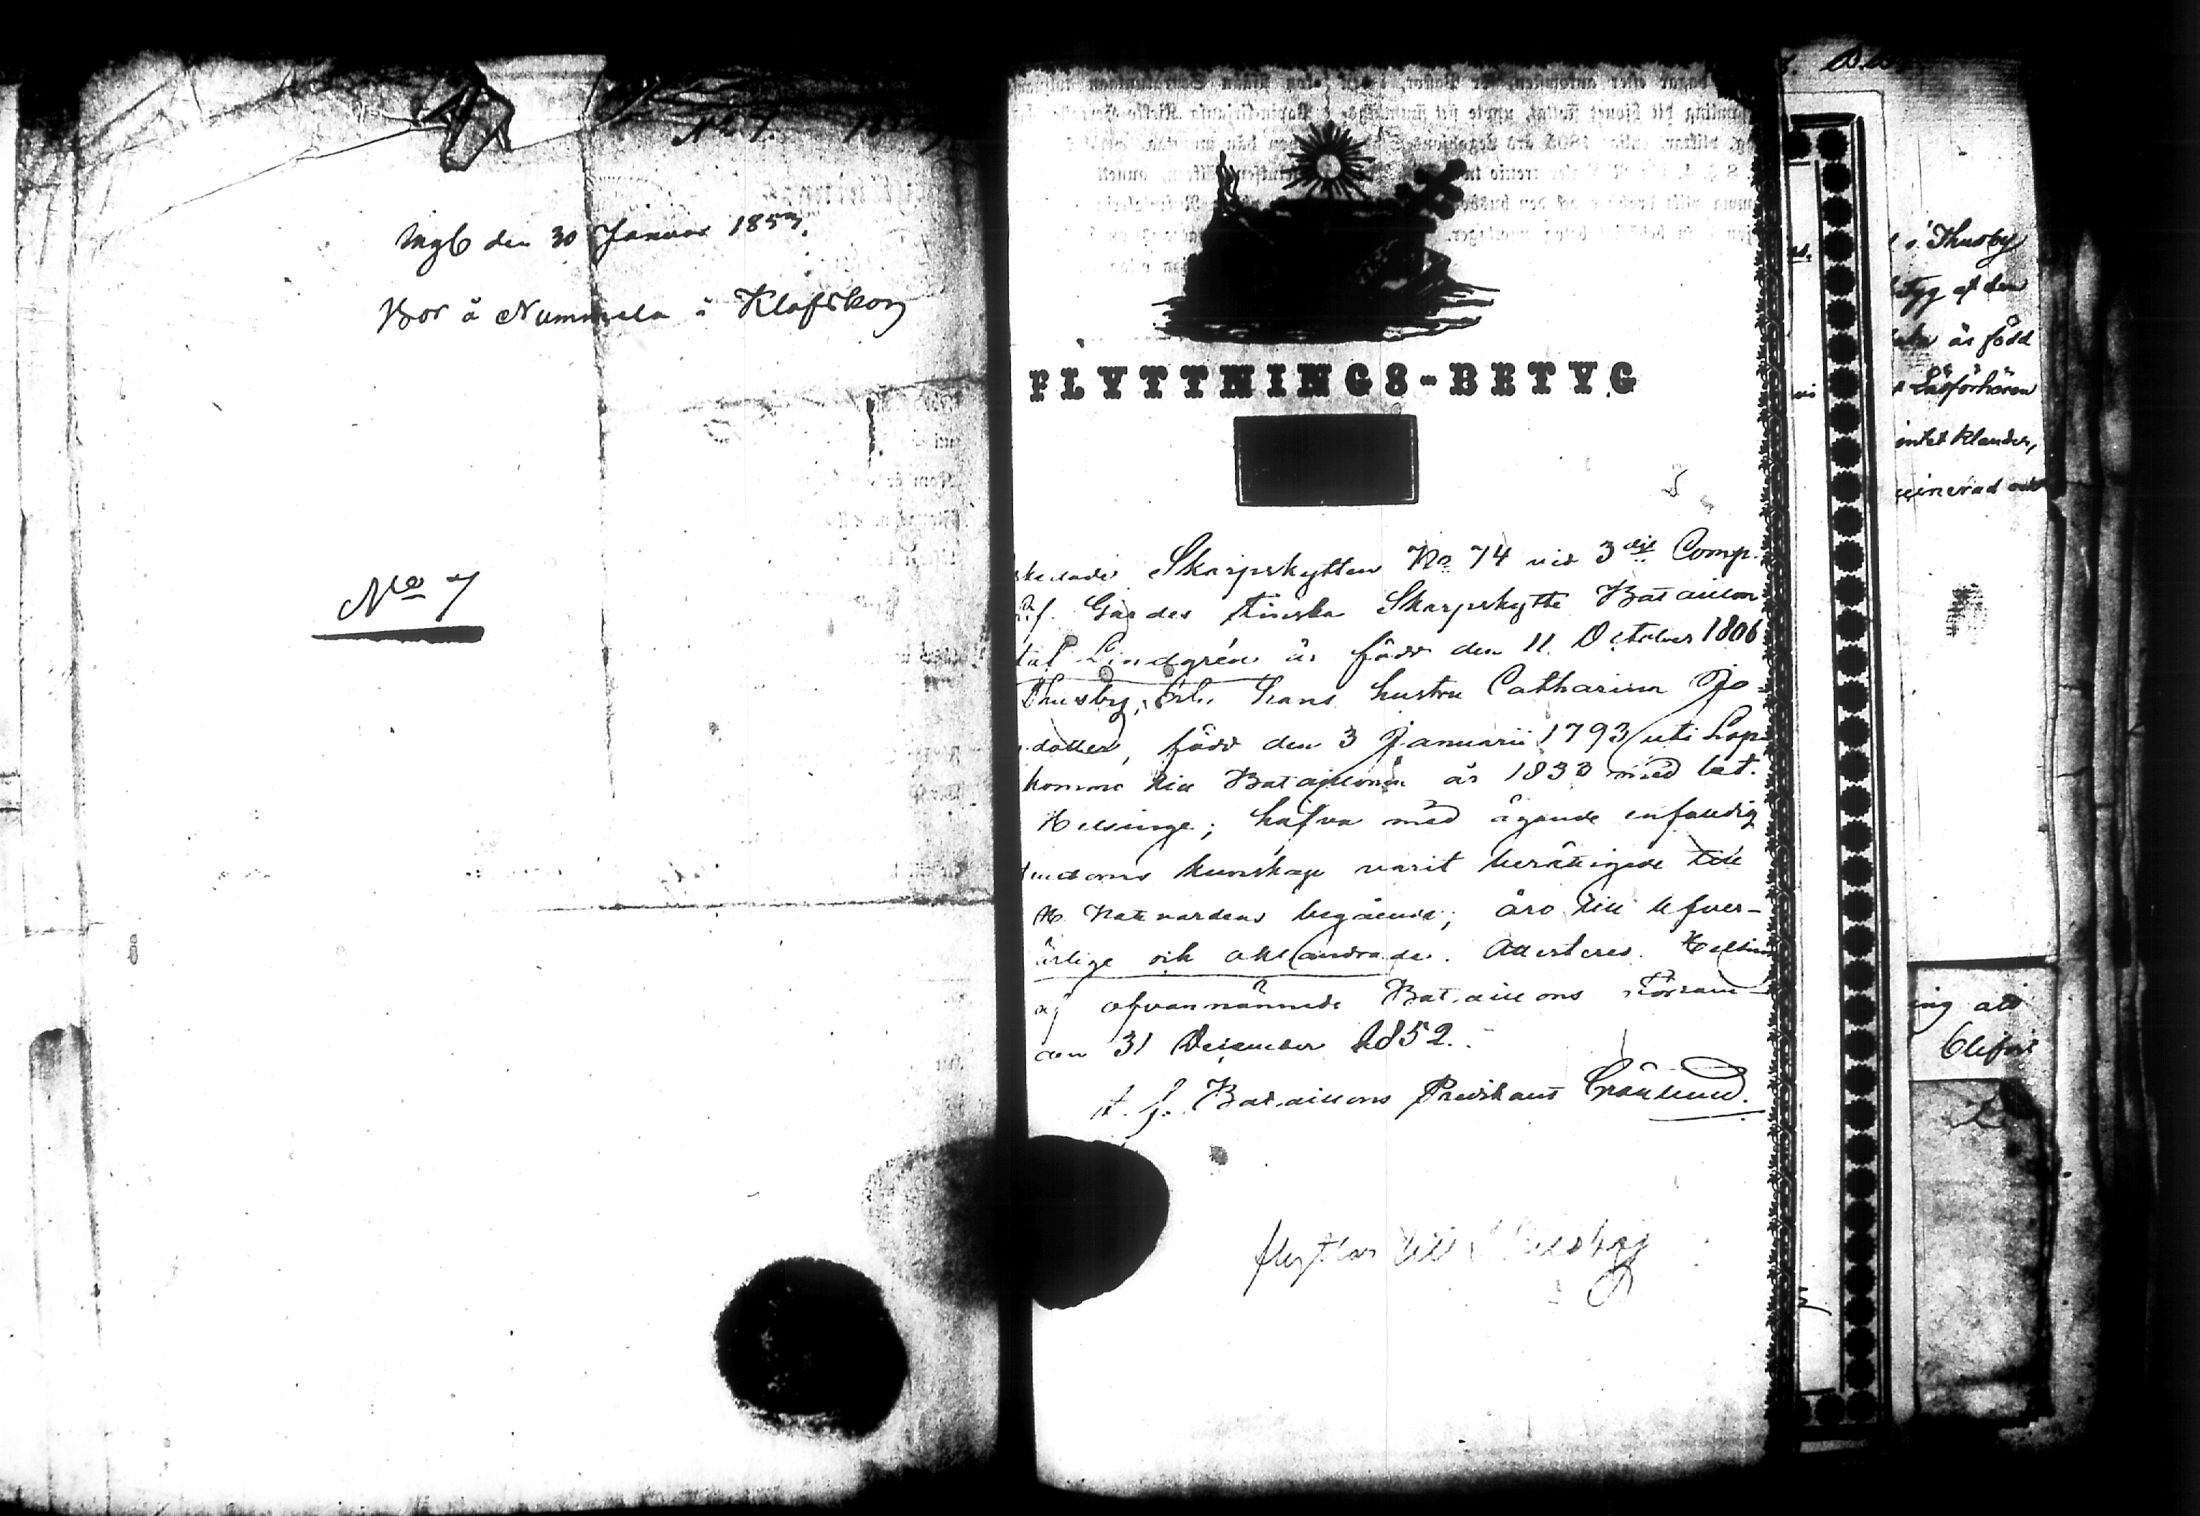 No 7. 18
Ingb den 30 Januar 1853.
Bor å Nummela i Klafskog
No 7
FLYTTNINGS-BETYG
skedade Skarpskytten No 74 vid 3dje Comp.
Gardes Finska Skarpskytte Bataillon
Lindgrén är född den 11 October 1806
Thusby, och hans hustru Catharina Jo-
dotter, född den 3 Januarii 1793 uti Lop-
komne till Bataillonen år 1833 med bet.
Helsinge; hafva med ägande enfaldig
doms kunskap varit berättigade till
H. Nattvardens begående; äro till lefver-
ärlige och oklandrade. Attesteras. Helsin
af ofvannämnde Bataillons Försam-
den 31 December 1852.
t. f. Bataillons Predikant Grönlund.
flyttar till Thusby
i Thusby
betyg af den
är född
Läsförhören
intet klander,
ing att
blifvit